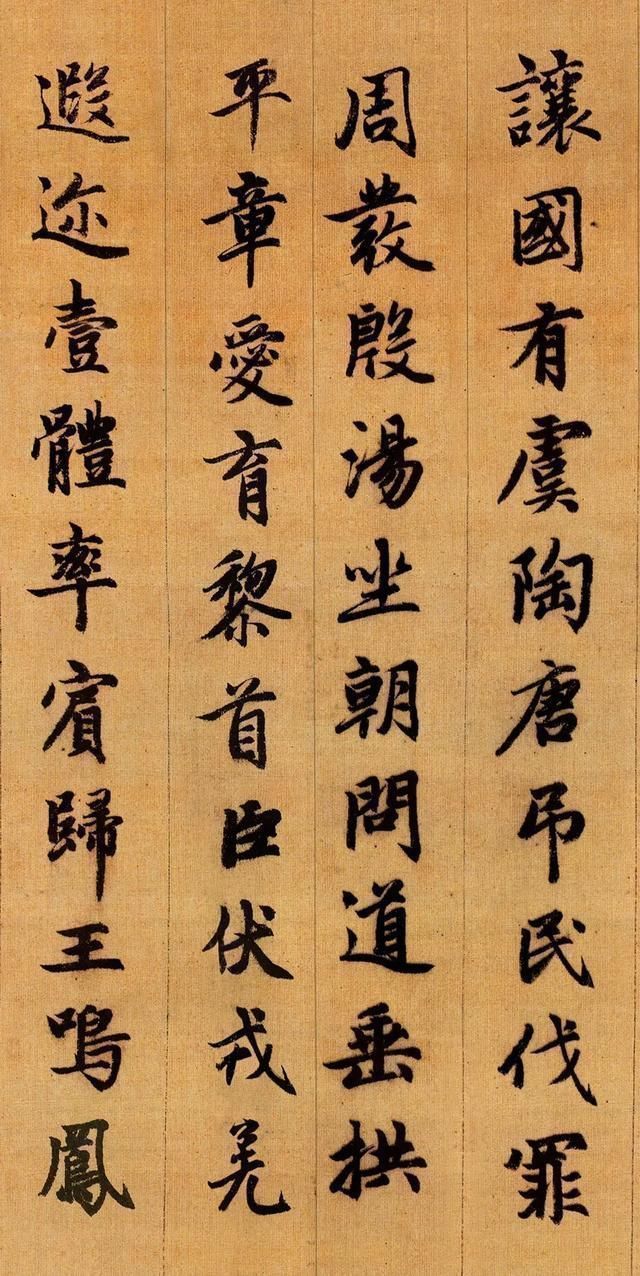 讓國有虞陶唐吊民伐罪
周發殷湯坐朝問道垂拱
平章愛育黎首臣伏戎羌
遐迩壹體率賓歸王鳴鳳